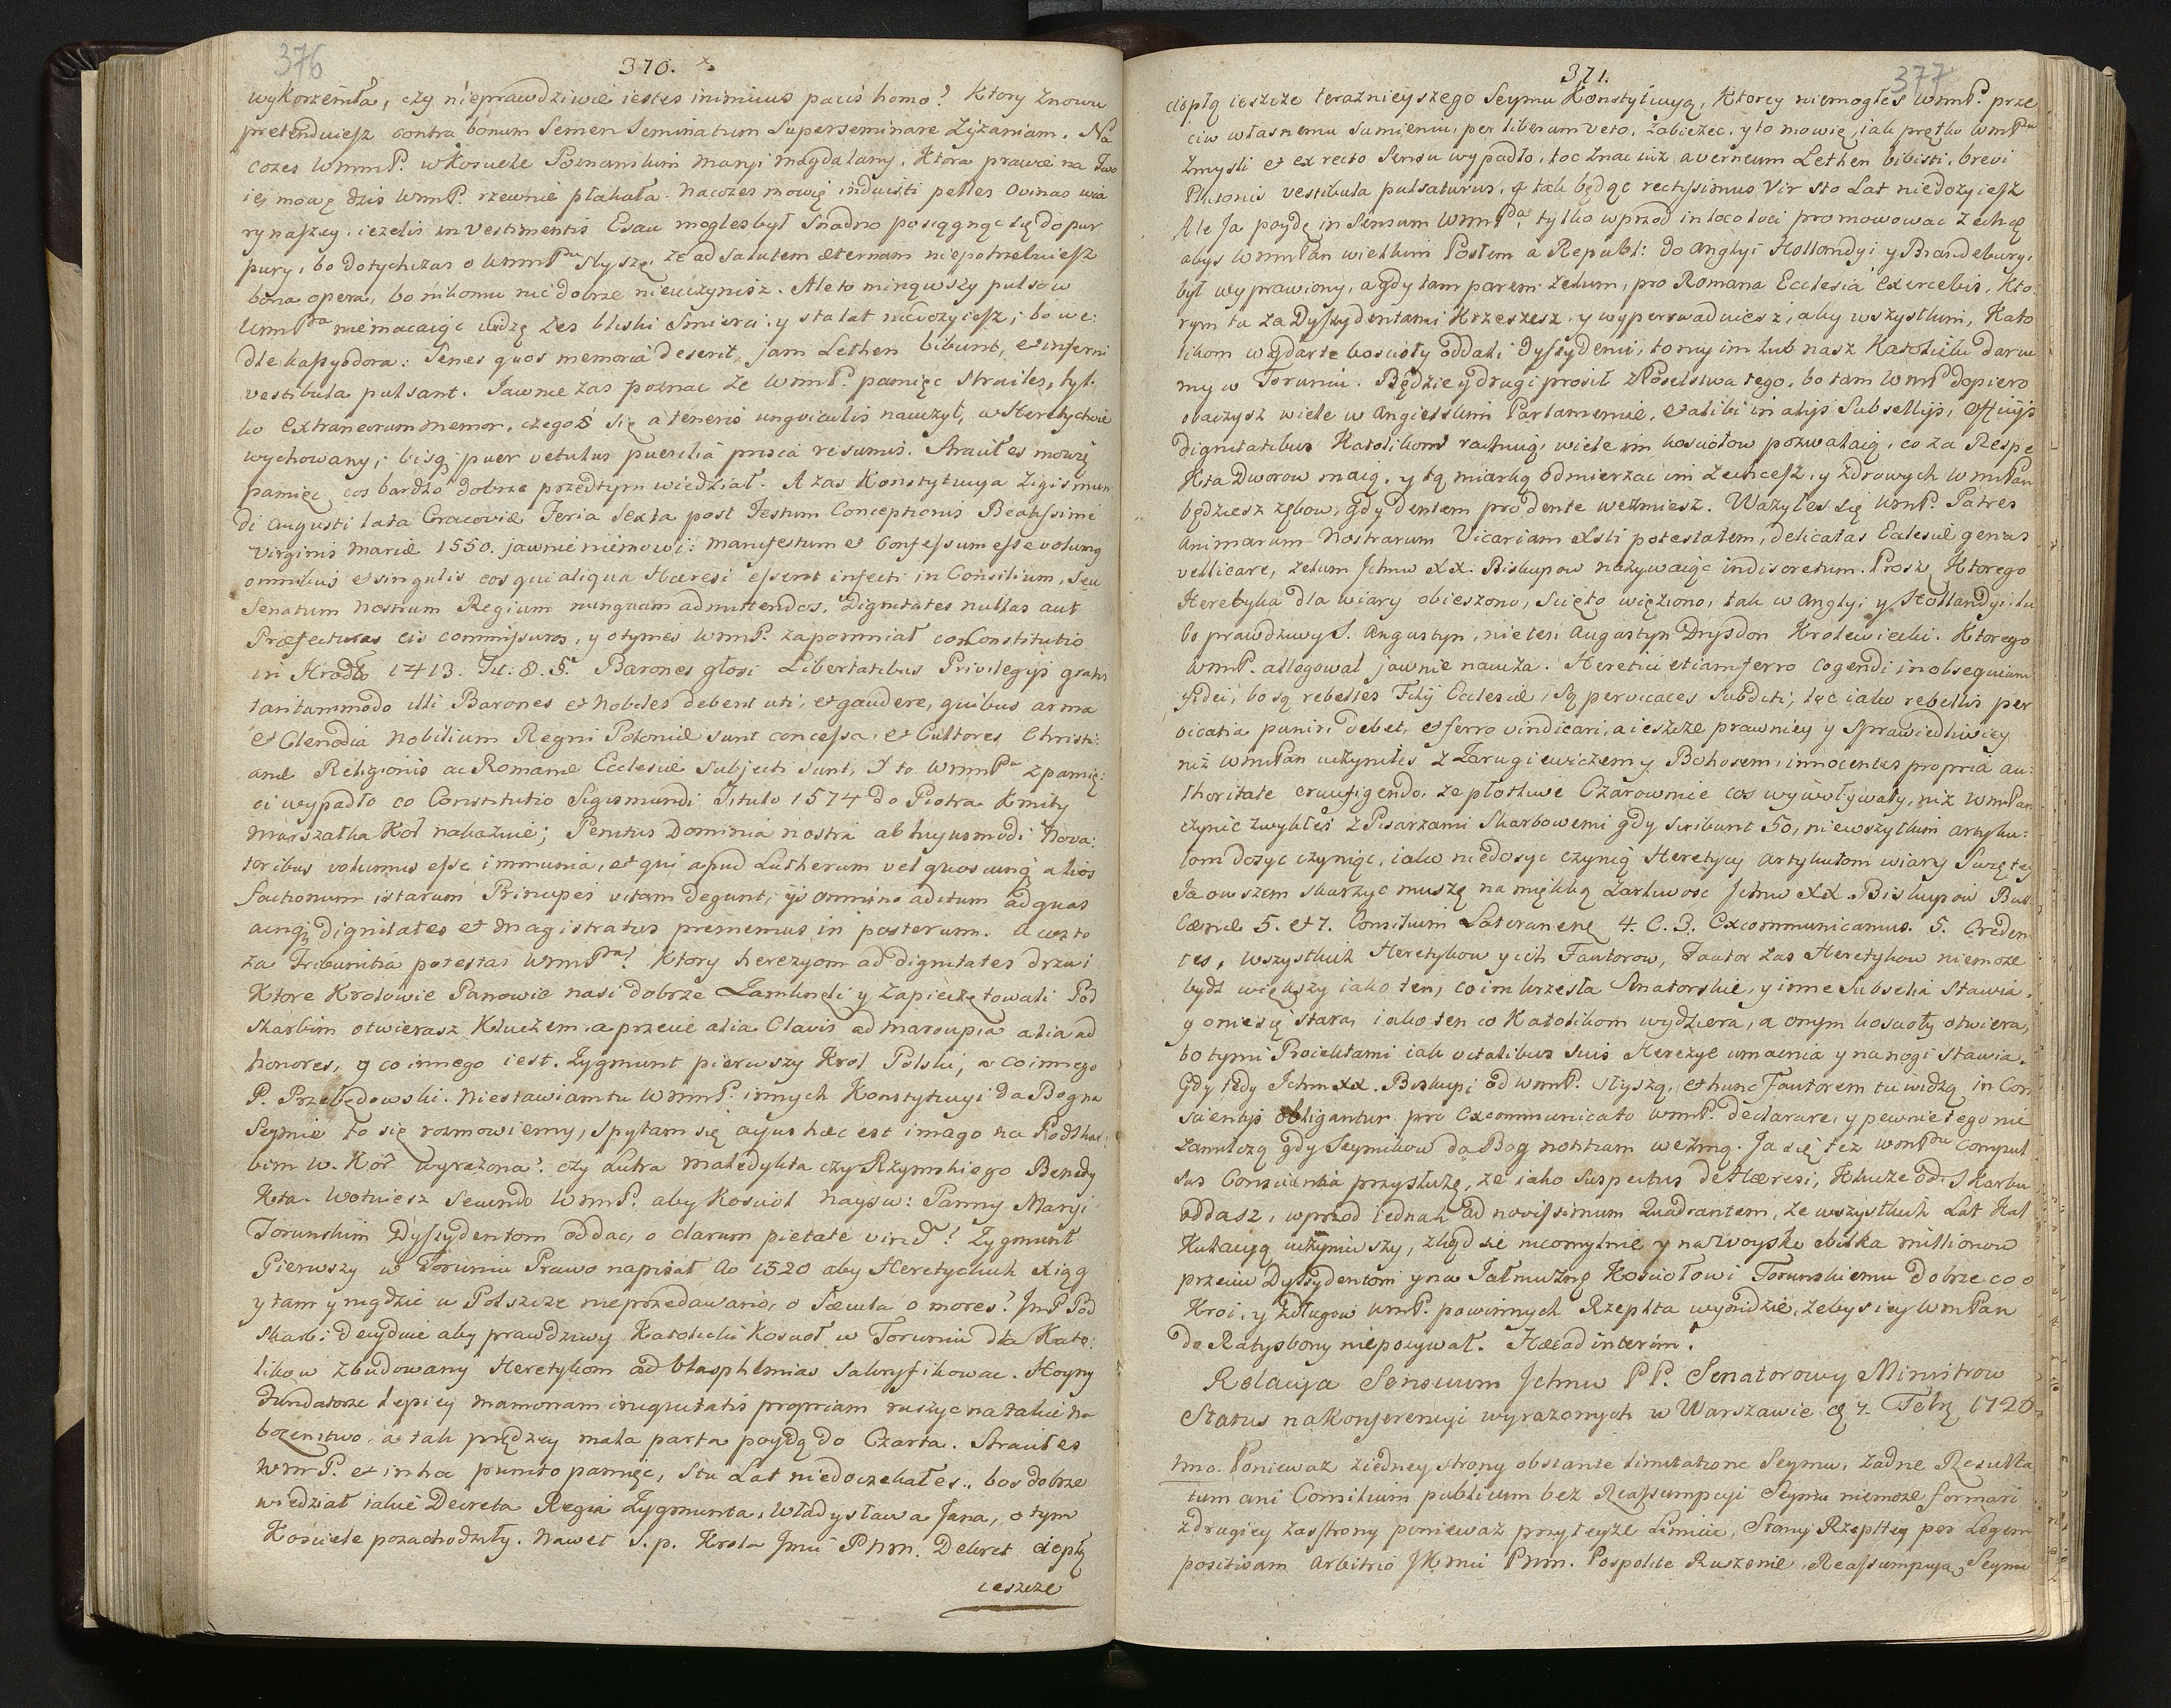 376
370. x
wykorzeniła, czy nieprawdziwie iestes inimicus pacis homo? Ktory znowu
pretenduiesz contra bonum Semen Seminatum Superseminare Zyzaniam. Na
cozes WmmP. w Kosciele Poznanskim Maryi Magdalany. Ktora prawie na two
ię mowę dzis WmP. rzewnie płakała. Nacozes mowię induisti pelles Ovinas wia
ry naszey. iezelis in vestimentis Esau moglesbył Snadno posięgnąc się do pur
pury, bo dotychczas o WmmPanu słyszę, ze ad Salutem æternam niepotrzebuiesz
bona opera, bo nikomu nic dobrze nieuczynisz. Ale to minąwszy pulsow
WmPana niemacaiąc widzę zes bliski Smierci, y sta lat niedozyiesz; bo we:
dle Kaszyodora: Senes quos memoria deserit, jam Lethen bibunt, et inferni
vestibula pulsant. Jawnie zas poznac ze WmP. pamięc Straciłes, tyl.
ko Extraneorum memor, czegos się a teneris unguiculis nauczył, w Heretyctwie
wychowany; bisq puer vetulus puerilia prisca resumis. Straciłes mowię
pamięc cos bardzo dobrze przedtym wiedział. A zas Konstytucya Zigismun
di Augusti lata Cracoviæ Feria Sexta post Festum Conceptionis Beatissimæ
Virginis Mariæ 1550. jawnie niemowi: manifestum et Confessum esse volumus
omnibus et singulis eos qui aliqua Hæresi essent infecti in Consilium, seu
Senatum nostrum Regium nunquam admittendos, Dignitates nullas aut
Præfecturas eis commissuros, y otymes WmP. zapomniał co Constitutio
in Hrodło 1413. Tit: 8. §. Barones głosi Libertatibus Privilegijs gratijs
tantummodo illi Barones et Nobiles debent uti, et gaudere, quibus arma
et Clenodia Nobilium Regni Poloniæ sunt concessa, et Cultores Christi:
anæ Religionis ac Romanæ Ecclesiæ Subjecti sunt. I to WmmPu z pamię:
ci wypadło co Constitutio Sigismundi Titulo 1574 do Piotra Kmity
Marszałka Kor nakazuie; Penitus Dominia nostra ab huyusmodi Nova:
toribus volumus esse immunia, et qui apud Lutherum vel quoscunq alios
factionum istarum Principes vitam degunt, ijs omnino aditum ad quas
cunq dignitates et Magistratus prememus in posterum. A coz to
za Tribunitia potestas WmPana? Ktory herezyom ad dignitates drzwi
Ktore Krolowie Panowie nasi dobrze Zamknęli y Zapieczętowali Pod
skarbim otwierasz Kluczem, a przecie alia Clavis ad marsupia alia ad
honores, y co innego iest. Zygmunt pierwszy Krol Polski, a co innego
P. Przebędowski. Niestawiam tu WmmP. innych Konstytucyi da Bog na
Seymie to się rozmowiemy, spytam się cuyus hæc est imago na Podskar
bim W. Kor wyrazona? czy Lutra Maledykta czy Rzymskiego Benedy
kta. Wotuiesz Secundo WmmP. aby Kosciol Nayśw: Panny Maryi
Torunskim Dyssydentom oddac, o clarum pietate virum! Zygmunt
Pierwszy w Toruniu Prawo napisał Ao 1520 aby Heretyckich Xiąg
y tam y nigdzie w Polszcze nieprzedawano, o Sæcula o mores? JmP Pod
skarbi decyduie aby prawdziwy Katolicki Kosciol w Toruniu dla Kato:
likow zbudowany Heretykom ad blasphemias sakryfikowac. Hoyny
Fundatorze lepiey mamonam iniquitatis propriam ruszyc na takie na
bozenstwo, a tak prędzey mala parta poydą do Czarta. Straciłes
WmP. et in hoc puncto pamięc, Stu Lat niedoczekałes, bos dobrze
wiedział iakie Decreta Regia Zygmunta, Władysława Jana, o tym
Kosciele pozachodziły. Nawet s.p. Krola Jmci Pnm. Dekret ciepłą
ieszcze
371.
377
ciepłą ieszcze teraznieyszego Seymu Konstytucyą, Ktorey niemogłes WmmP. prze
ciw własnemu sumieniu, per liberum veto, zabiezec, y to mowię, iak prętko WmPu
Zmysli et ex recto Sensu wypadło, toc znac iuz avernum Lethen bibisti, brevi
Plutonis vestibula pulsaturus, y tak będąc rectissimus Vir sto Lat niedozyiesz
Ale Ja poydę in Sensum WmmPana, tylko wprzod in loco loci promowowac Zechcę
abys WmmPan wielkim Posłem a Republ: do Anglyi Hollandyi y Brandeburyi
był wyprawiony, a gdy tam parem Zelum, pro Romana Ecclesia exercebis, Kto:
rym tu za Dyssydentami Krzeszesz, y wyperswaduiesz, aby wszystkim, Kato
likom wydarte koscioły oddali Dyssydenci, to my im lub nasz Katolicki daru
my w Toruniu. Będzie y drugi prosił z Poselstwa tego, bo tam WmP dopiero
obaczysz wiele w Angielskim Parlamencie, et alibi in alijs Subsellijs, Officijs
Dignitatibus Katolikow rachuią, wiele im kosciołow pozwalaią, co za Respe
kta Dworow maią, y tą miarką odmierzac im Zechcesz, y zdrowych WmmPan
będziesz zębow, gdy dentem pro dente wezmiesz. Wazyłes się WmP. Patres
Animarum Nostrarum Vicariam Xsti potestatem, delicatas Ecclesiæ genas
vellicare, zelum Jchmw XX. Biskupow nazywaiąc indiscretum. Proszę Ktorego
Heretyka dla wiary obieszono, scięto więziono, tak w Anglyi y Hollandyi, tu
bo prawdziwy S. Augustyn, nie ten Augustyn Drysdon Krolewiecki. Ktorego
WmP. allegował jawnie naucza. Heretici etiam ferro cogendi in obsequium
fidei, bo są rebelles Filij Ecclesiæ, Są pervicaces Subditi, tęc iako rebellis per
vicatia puniri debet, et ferro vindicari, a ieszcze prawniey y sprawiedliwiey
niz WmPan uczyniłes z Zarugiewiczem y Bohosem, innocentes propria au:
thoritate crucifigendo, ze płotliwe Czarownice cos wywoływały, niz WmPan
czynic zwykłes z Pisarzami Skarbowemi gdy scribunt 50, niewszytkim artyku:
łom dosyc czyniąc, iako niedosyc czynią Heretycy artykułom wiary Swiętey
Ja owszem skarzyc muszę na miękką Zarliwosc Jchmw XX. Biskupow Bull
Cænæ 5. et 7. Consilium Lateranene 4. C. 3. Excommunicamus. 5. Creden
tes, wszystkich Heretykow y ich Fautorow, Fautor zas Heretykow niemoze
bydz większy iako ten, co im krzesła Senatorskie, y inne Subselia Stawia,
y onie się stara, iako ten co Katolikom wydziera, a onym koscioły otwiera,
bo tymi Proiektami iak vitalibus suis Herezye umacnia y na nogi stawia.
Gdy tedy Jchm XX. Biskupi od WmP. słyszą, et hunc Fautorem tu widzą in Con
scientijs obligantur pro Excommunicato WmP. declarare, y pewnie tego nie
Zamilczą gdy Seymikow da Bog notitiam wezmą. Ja się tez WmPu Compul
sus Conscientia przysłuzę, ze iako Suspectus de Hæresi, Klucze od Skarbu
oddasz, wprzod iednak ad novissimum Quadrantem, ze wszystkich Lat Kal
Kulacyą uczyniwszy, zkąd się nieomylnie y na Woysko kilka millionow
przeciw Dyssydentom y na Jałmuznę Kosciołowi Torunskiemu dobrze co o
Kroi, y z długow WmP. powinnych Rzeplta wynidzie, zebys iey WmPan
de Ratysbony niepozywał. Hæc ad interim.
Relacya Sensuum Jchmw PP. Senatorow y Ministrow
Status na Konferencyi wyrazonych w Warszawie d. 7. Febr. 1726
1mo. Poniewaz ziedney strony obstante limitatione Seymu, zadne Resulta
tum ani Consilium publicum bez Reassumpcyi Seymu niemoze formari
z drugiey zas strony poniewaz przy teyze Limicie, Stany Rzepltey per Legem
positivam arbitrio JKmci Pnm. Pospolite Ruszenie, Reassumpcyą Seymu